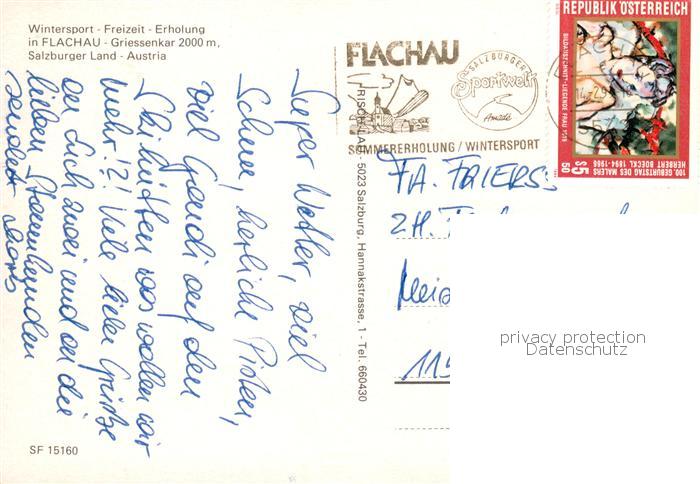 Wintersport - Freizeit - Erholung
in FLACHAU - Griessenkar 2000 m,
Salzburger Land - Austria
Super Wetter, viel
Schnee, herrliche Pisten,
viel Gaudi auf den
Skihütten was wollen wir
mehr?! Viele liebe Grüsse
an Dich zwei und an die
lieben
sendet
SF 15160
- 5023 Salzburg, Hannakstrasse, 1 - Tel. 660430
FLACHAU
SALZBURGER
Sportwelt
Amadé
SOMMERERHOLUNG / WINTERSPORT
REPUBLIK ÖSTERREICH
BILDAUSSCHNITT - LIEGENDE FRAU 1919
100. GEBURTSTAG DES MALERS
HERBERT BOECKL 1894-1966
S5 50
FA.
ZH.
115
privacy protection
Datenschutz